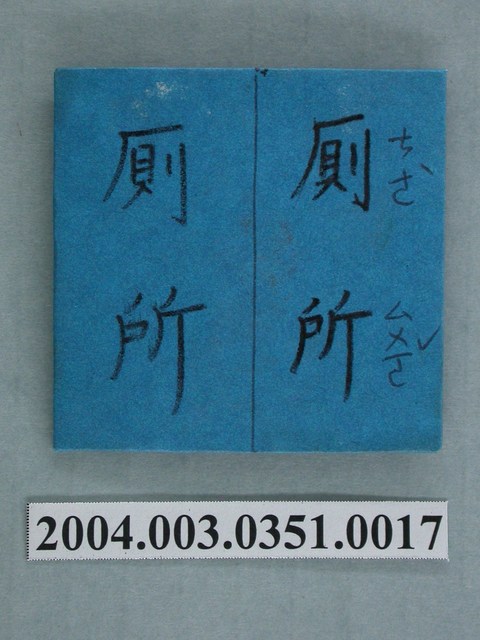 厠所
ㄘㄜˋ ㄙㄨㄛˇ
厠所
2004.003.0351.0017